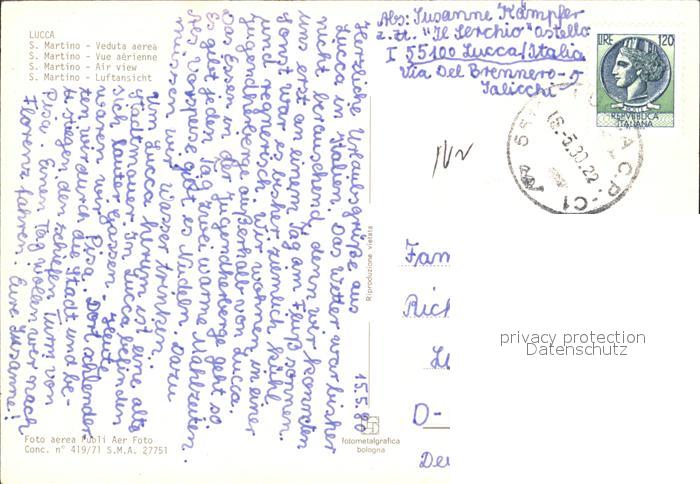 LUCCA
S. Martino - Veduta aerea
S. Martino - Vue aérienne
S. Martino - Air view
S. Martino - Luftansicht
Abs: Susanne Kämpfer
z. Zt. "Il Serchio" ostello
I 55100 Lucca/Italia
Via Del Brennero-5
Salicchi
LIRE 120
REPVBBLICA
ITALIANA
16.-5.80.22
A C.P.-C1
15.5.80
Herzliche Urlaubsgrüße aus
Lucca in Italien. Das Wetter war bisher
nicht berauschend, denn wir konnten
uns erst an einem Tag am Fluß sonnen.
Sonst war es bisher ziemlich kühl
und regnerisch. Wir wohnen in einer
Jugendherberge außerhalb von Lucca.
Das Essen in der Jugendherberge geht so.
Es gibt jeden Tag zwei warme Mahlzeiten.
Als Vorspeise gibt es Nudeln. Dazu
müssen wir Wasser trinken.
Um Lucca herum ist eine alte
Stadtmauer. In Lucca befinden
sich lauter Gassen. Heute
waren wir in Pisa. Dort schlender
ten wir durch die Stadt und be-
stiegen den schiefen Turm von
Pisa. Einen Tag wollen wir nach
Florenz fahren. Eure Susanne!
Riproduzione vietata
Fam
Rich
D-
privacy protection
Datenschutz
Foto aerea Publi Aer Foto
Conc. n° 419/71 S.M.A. 27751
fotometalgrafica
bologna